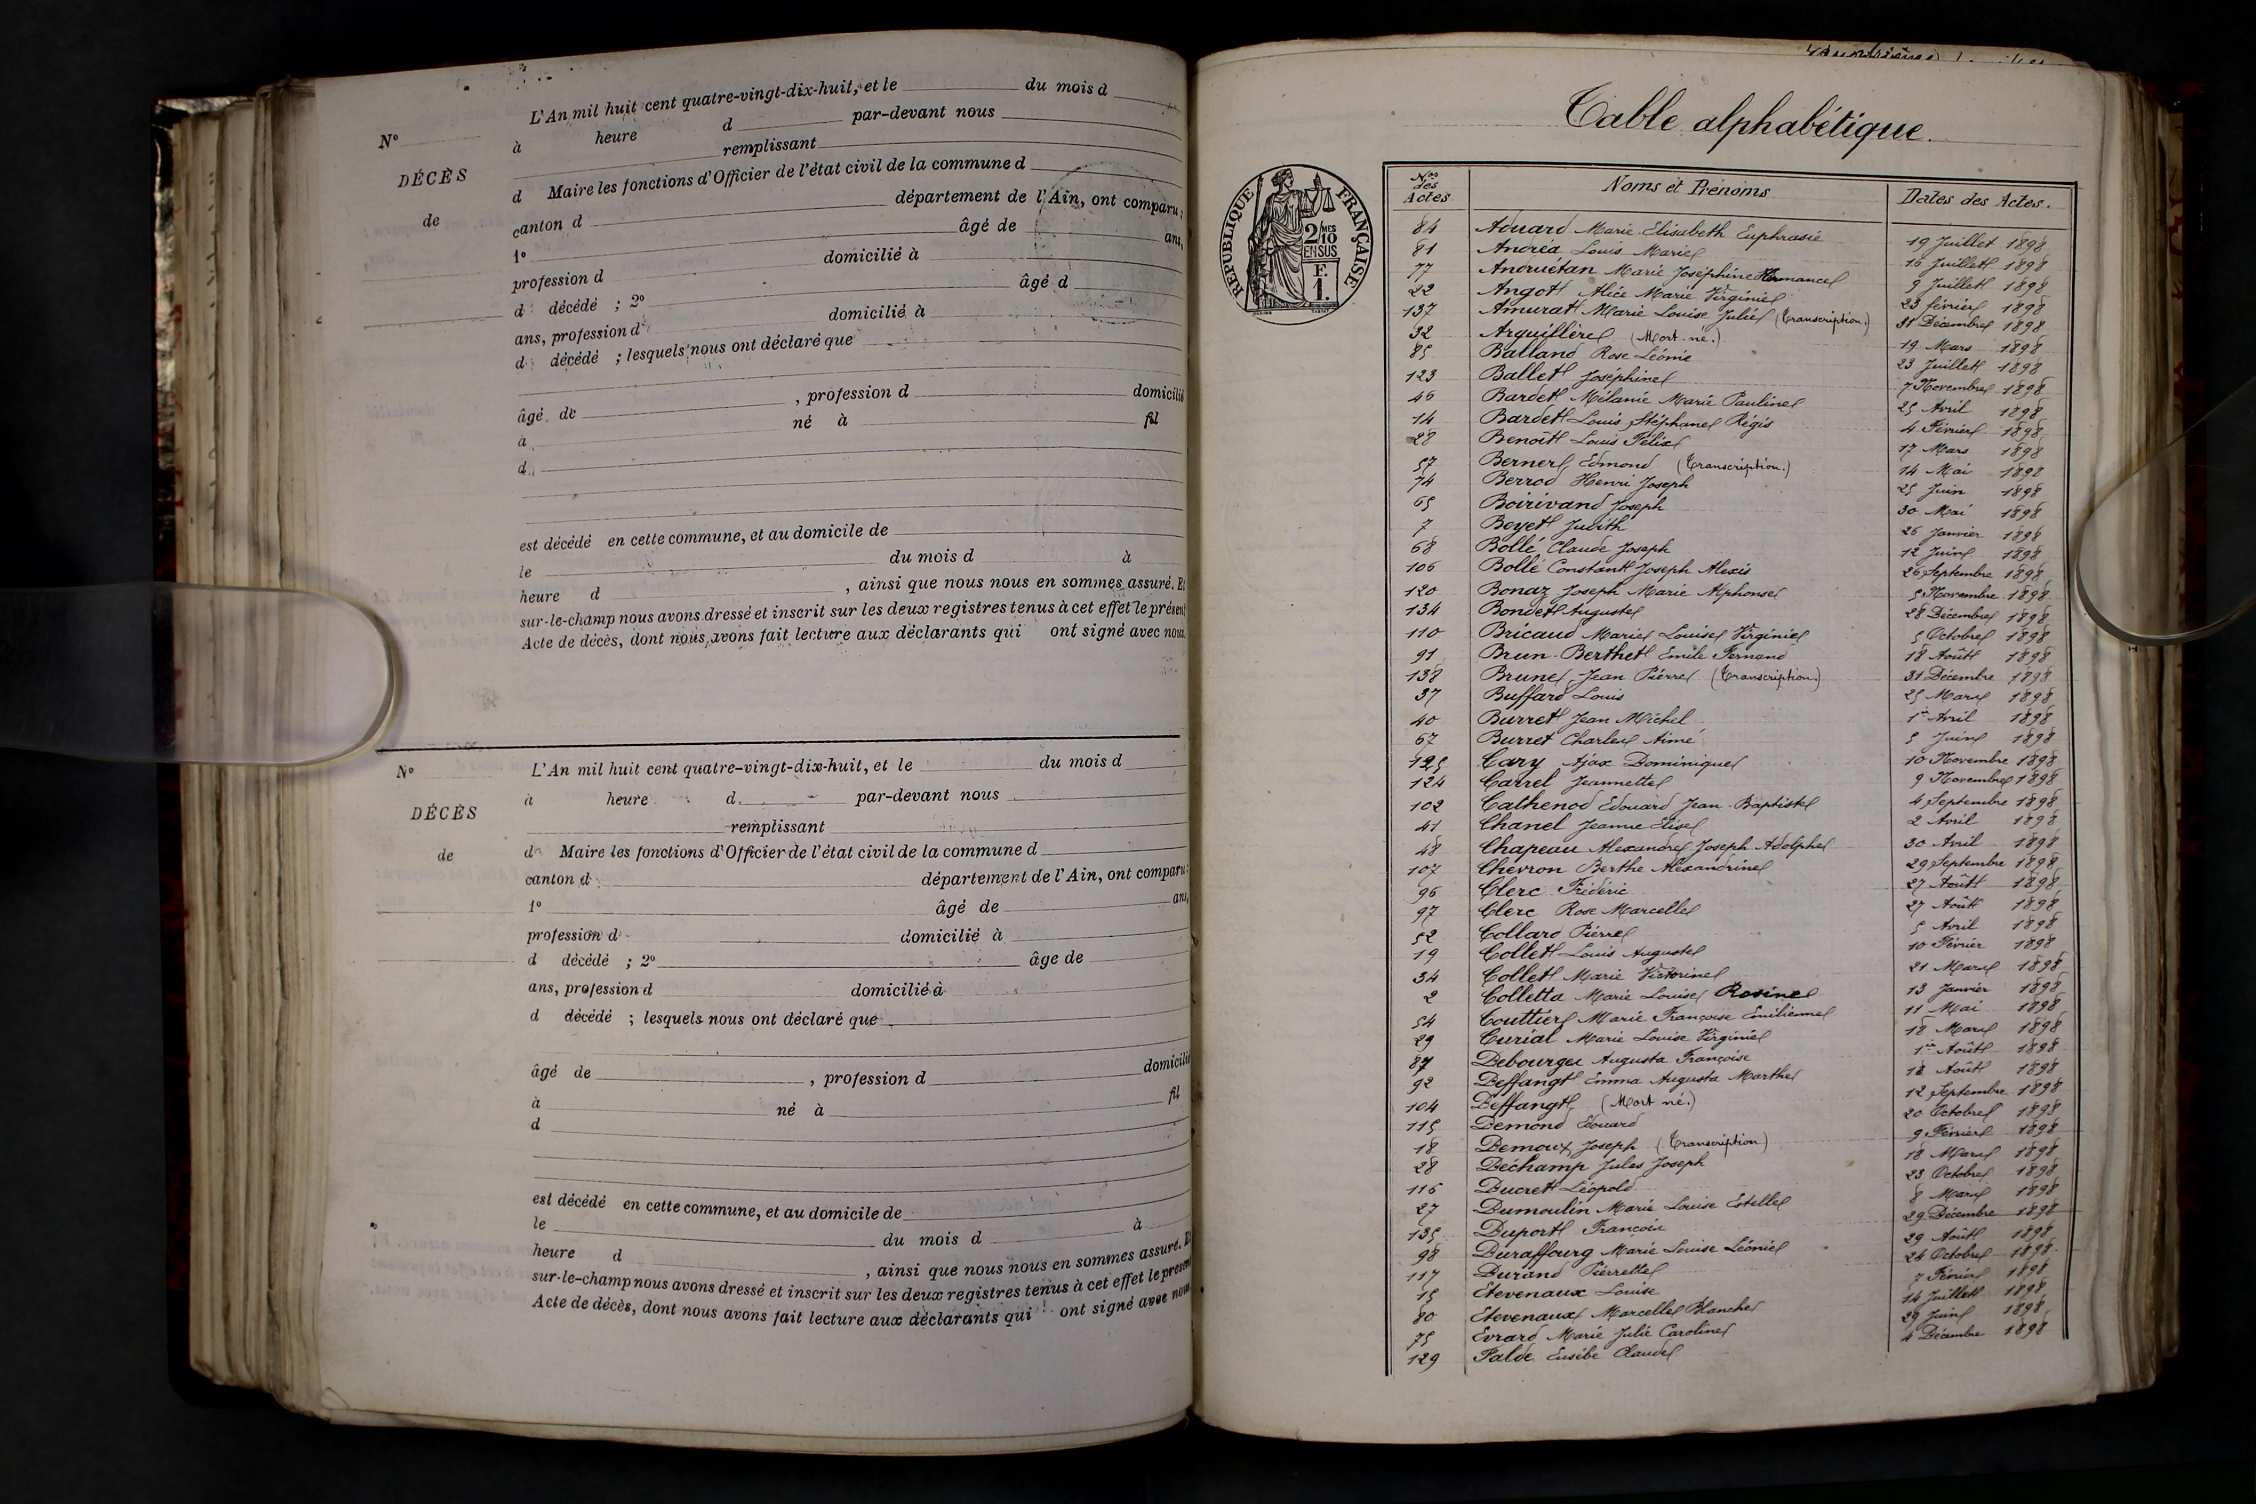 L'An mil huit cent quatre-vingt-dix-huit, et le du mois d
N° à heure d par-devant nous
remplissant
DÉCÈS
d Maire les fonctions d'Officier de l'état civil de la commune d
de
canton d département de l'Ain, ont comparu :
1° âgé de ans,
profession d domicilié à
d décédé ; 2° âgé d
ans, profession d domicilié à
d décédé ; lesquels nous ont déclaré que
âgé de , profession d domicilié
à né à fil
d
est décédé en cette commune, et au domicile de
le du mois d à
heure d , ainsi que nous nous en sommes assuré. Et
sur-le-champ nous avons dressé et inscrit sur les deux registres tenus à cet effet le présent
Acte de décès, dont nous avons fait lecture aux déclarants qui ont signé avec nous.
N° L'An mil huit cent quatre-vingt-dix-huit, et le du mois d
à heure d par-devant nous
DÉCÈS
remplissant
de
d Maire les fonctions d'Officier de l'état civil de la commune d
canton d département de l'Ain, ont comparu :
1° âgé de ans,
profession d domicilié à
d décédé ; 2° âge de
ans, profession d domicilié à
d décédé ; lesquels nous ont déclaré que
âgé de , profession d domicilié
à né à fil
d
est décédé en cette commune, et au domicile de
le du mois d à
heure d , ainsi que nous nous en sommes assuré. Et
sur-le-champ nous avons dressé et inscrit sur les deux registres tenus à cet effet le présent
Acte de décès, dont nous avons fait lecture aux déclarants qui ont signé avec nous
Table alphabétique.
RÉPUBLIQUE FRANÇAISE
2/MES 10
EN SUS
F.
1.
Nos des Actes Noms et Prénoms Dates des Actes.
84 Aduard Marie Elisabeth Euphrasie 19 Juillet 1898
81 Andréa Louis Marie 16 Juillet 1898
77 Andruétan Marie Joséphine Hermance 9 Juillet 1898
22 Angot Alice Marie Virginie 23 février 1898
137 Amurat Marie Louise Julie (Transcription.) 31 Décembre 1898
32 Arguillère (Mort né.) 19 Mars 1898
85 Balland Rose Léonie 23 Juillet 1898
123 Ballet Joséphine 7 Novembre 1898
46 Bardet Mélanie Marie Pauline 25 Avril 1898
14 Bardet Louis Stéphane Régis 4 Février 1898
28 Benoît Louis Félix 17 Mars 1898
57 Berner Edmond (Transcription.) 14 Mai 1898
74 Berrod Henri Joseph 25 Juin 1898
65 Boirivand Joseph 30 Mai 1898
7 Boyet Judith 26 Janvier 1898
68 Bollé Claude Joseph 12 Juin 1898
106 Bollé Constant Joseph Alexis 26 Septembre 1898
120 Bonaz Joseph Marie Alphonse 5 Novembre 1898
134 Bondet Auguste 28 Décembre 1898
110 Bricaud Marie Louise Virginie 5 Octobre 1898
91 Brun-Berthet Emile Fernand 18 Août 1898
138 Brune Jean Pierre (Transcription.) 31 Décembre 1898
37 Buffard Louis 25 Mars 1898
40 Burret Jean Michel 1er Avril 1898
67 Burret Charles Aimé 5 Juin 1898
125 Cary Ajax Dominique 10 Novembre 1898
124 Carrel Jeannette 9 Novembre 1898
102 Cathenod Edouard Jean-Baptiste 4 Septembre 1898
41 Chanel Jeanne Elise 2 Avril 1898
48 Chapeau Alexandre Joseph Adolphe 30 Avril 1898
107 Chevron Berthe Alexandrine 29 Septembre 1898
96 Clerc Frédéric 27 Août 1898
97 Clerc Rose Marcelle 27 Août 1898
52 Collard Pierre 5 Avril 1898
19 Collet Louis Auguste 10 Février 1898
34 Collet Marie Victorine 21 Mars 1898
2 Colletta Marie Louise Rosine 13 Janvier 1898
54 Couttier Marie Françoise Emilienne 11 Mai 1898
29 Curial Marie Louise Virginie 18 Mars 1898
87 Debourgeu Augusta Françoise 1er Août 1898
92 Deffangt Emma Augusta Marthe 18 Août 1898
104 Deffangt (Mort né.) 12 Septembre 1898
115 Demond Edouard 20 Octobre 1898
18 Demoux Joseph (Transcription) 9 Février 1898
28 Déchamp Jules Joseph 18 Mars 1898
116 Ducret Léopold 23 Octobre 1898
27 Dumoulin Marie Louise Estelle 8 Mars 1898
135 Duport François 29 Décembre 1898
98 Duraffourg Marie Louise Léonie 29 Août 1898
117 Durand Pierrette 24 Octobre 1898
15 Etevenaux Louise 7 Février 1898
80 Etevenaux Marcelle Blanche 14 Juillet 1898
75 Evrard Marie Julie Caroline 29 Juin 1898
129 Falde Eusèbe Claude 4 Décembre 1898